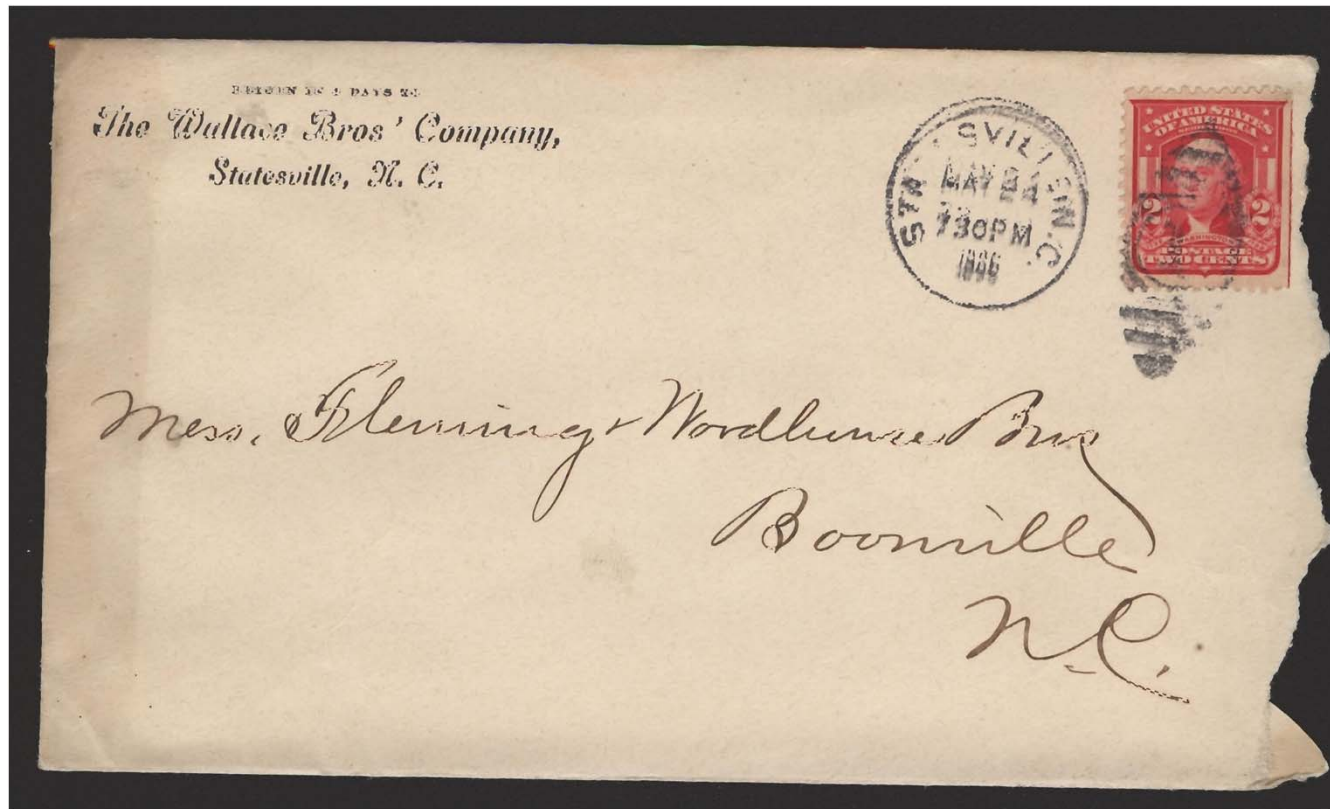 RETURN IN DAYS TO
The Wallace Bros' Company,
Statesville, N. C.
STATESVILLE N.C.
MAY 24
730PM
UNITED STATES
OF AMERICA
2 2
WASHINGTON
POSTAGE
TWO CENTS
Mess. Fleming & Woodhouse Bros
Boonville
N.C.